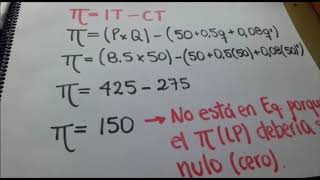 π = IT - CT
π = (P×Q) - (50+0,5q+0,08q²)
π = (8.5×50) - (50+0,5(50)+0,08(50)²
π = 425 - 275
π = 150 → No está en Eq porque
el π(LP) debería
nulo (cero).